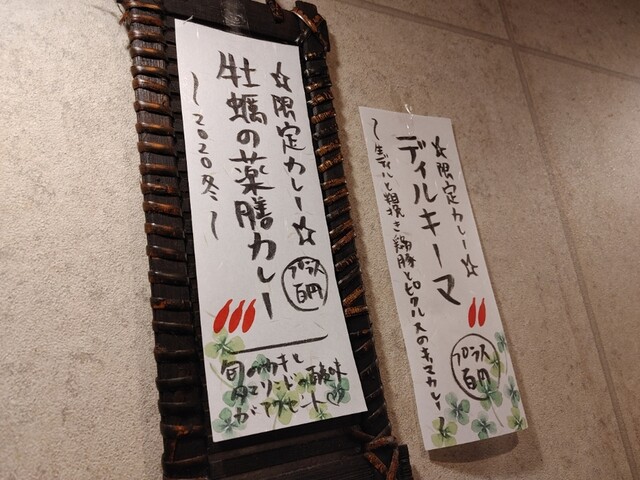 ☆限定カレー☆
牡蠣の薬膳カレー
～2020冬～
プラス
百円
旬のカキと
タマリンドの酸味
がアクセント♡
☆限定カレー☆
ディルキーマ
～生ディルと粗挽き鶏豚とピクルスのキーマカレー～
プラス
百円